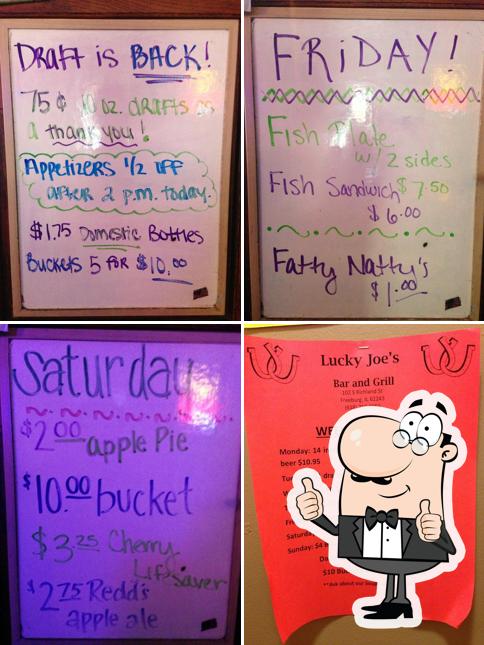 Draft is BACK!
75¢ 10 oz. drafts as
a thank you!
Appetizers 1/2 off
after 2 p.m. today.
$1.75 Domestic Bottles
Buckets 5 for $10.00
FRiDAY!
Fish Plate
w/ 2 sides
$7.50
Fish Sandwich
$6.00
Fatty Natty's
$1.00
Saturday
$2.00 apple Pie
$10.00 bucket
$3.25 Cherry
Lifesaver
$2.75 Redd's
apple ale
Lucky Joe's
Bar and Grill
102 S Richland St
Freeburg, IL 62243
Monday: 14 in
beer $10.95
Sunday: $4